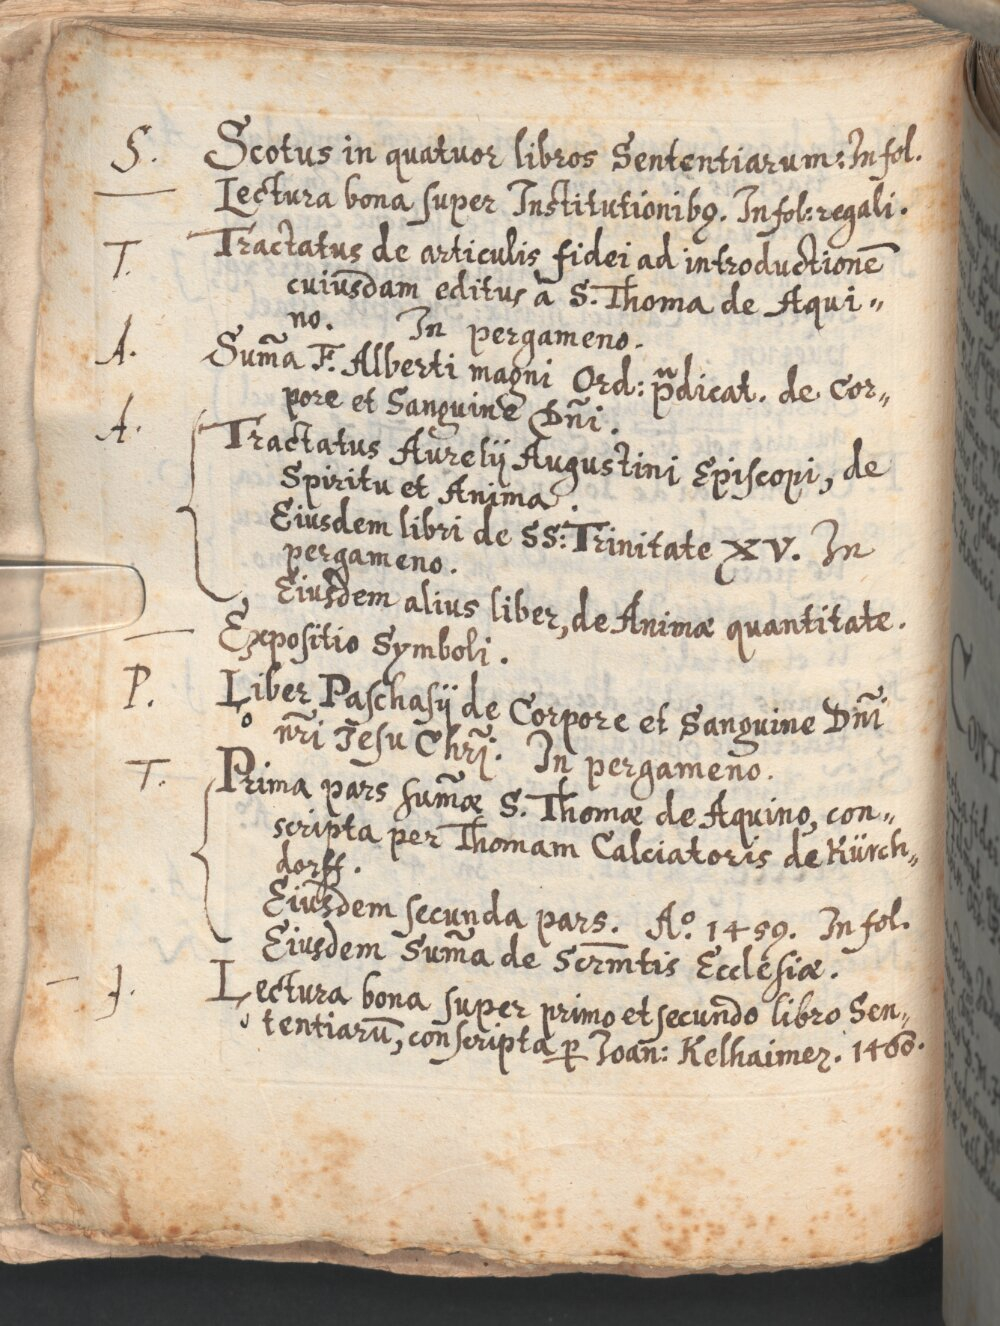 S. Scotus in quatuor libros Sententiarum: In fol.
Lectura bona super Institutionibꝰ. In fol: regali.
T. Tractatus de articulis fidei ad introductionē
cuiusdam editus à S. Thoma de Aqui„
no. In pergameno.
A. Sum̄a F. Alberti magni Ord: p̄dicat. de Cor„
pore et Sanguine Dn̄i.
A. Tractatus Aurelij Augustini Episcopi, de
Spiritu et Anima.
Eiusdem libri de SS: Trinitate XV. In
pergameno.
Eiusdem alius liber, de Animæ quantitate.
Expositio Symboli.
P. Liber Paschasij de Corpore et Sanguine Dn̄i
nr̄i Jesu Chrī. In pergameno.
T. Prima pars sum̄æ S. Thomæ de Aquino, con„
scripta per Thomam Calciatoris de Kürch„
dorff.
Eiusdem secunda pars. Aº. 1459. In fol.
Eiusdem Sum̄a de Scrm̄tis Ecclesiæ.
J. Lectura bona super primo et secundo libro Sen„
tentiarū, conscripta ꝑ Joan: Kelhaimer. 1460.